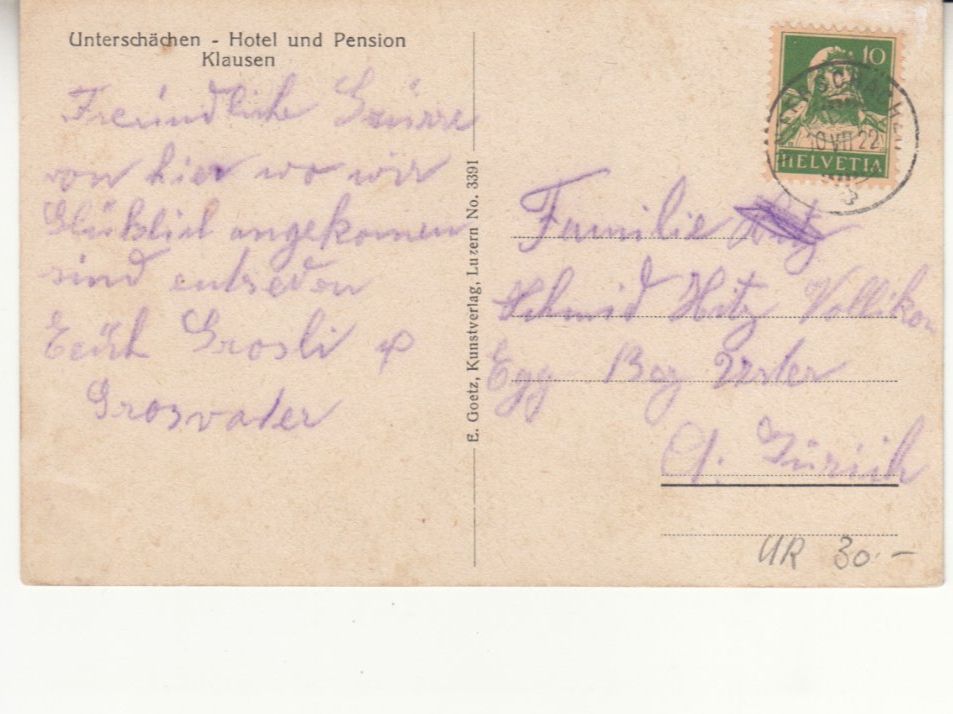 Unterschächen - Hotel und Pension
Klausen
Freündliche Grüsse
von hier wo wir
Glüklich angekomen
sind entseden
Eüch Grosli &
Grosvater
E. Goetz, Kunstverlag, Luzern No. 3391
10
10 VII 22
HELVETIA
Familie
Schmid Hitz Vollikon
Egg Bez Uster
Ct. Zürich
UR 30.-